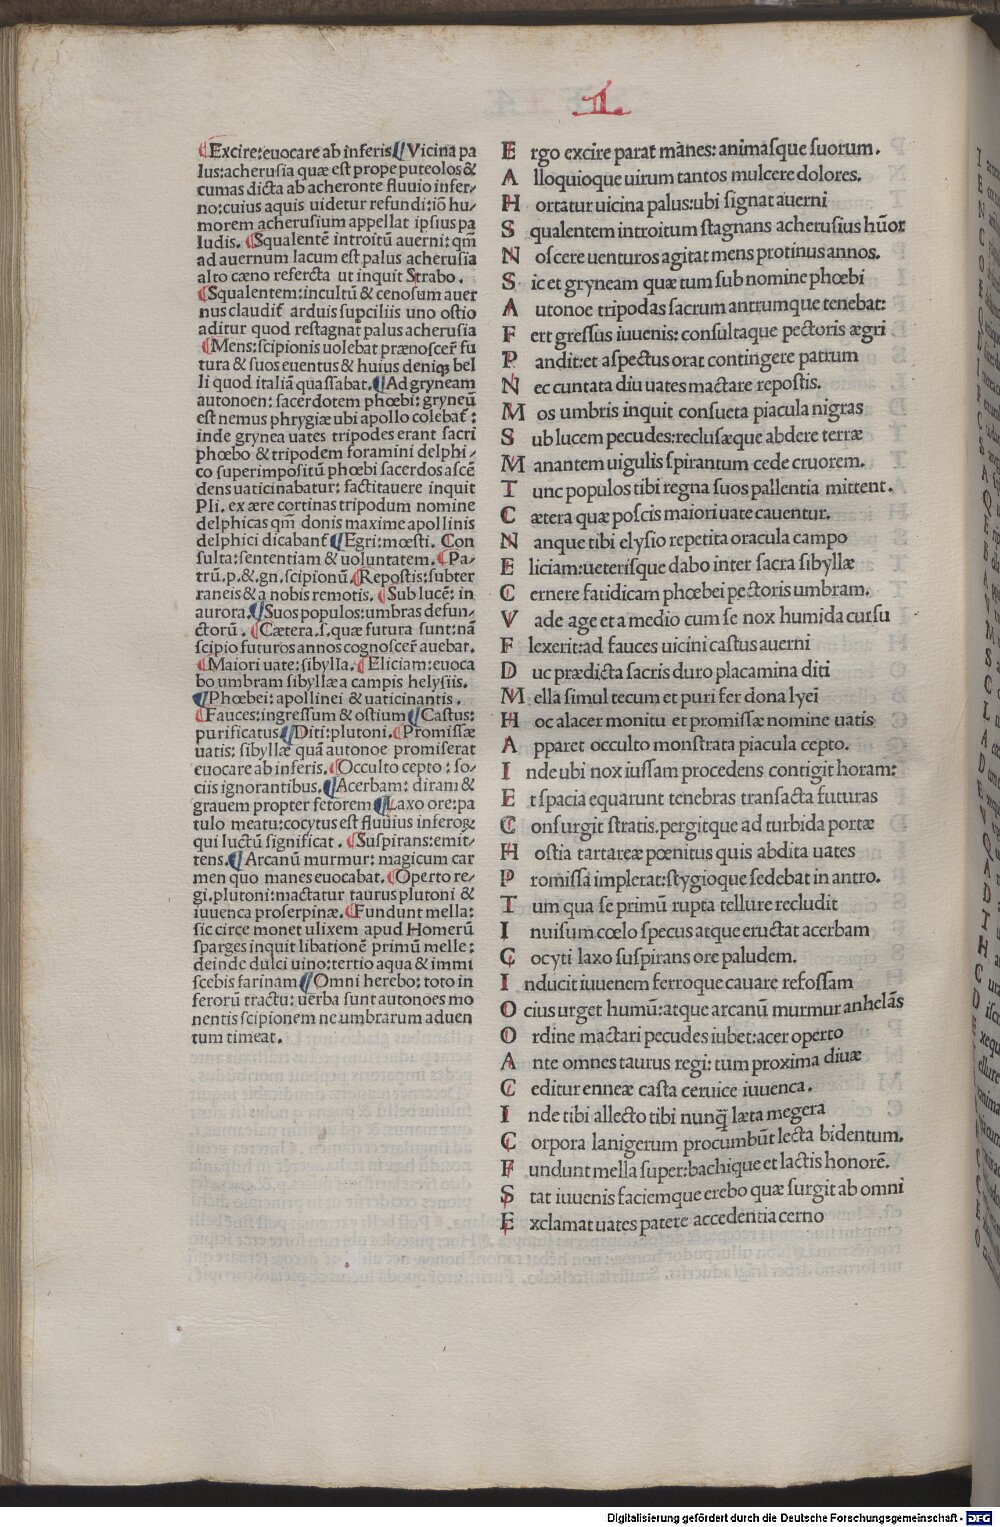 L
⸿Excire:euocare ab inferis⸿Vicina pa
lus:acherusia quæ est prope puteolos &
cumas dicta ab acheronte fluuio infer/
no:cuius aquis uidetur refundi:iõ hu/
morem acherusium appellat ipsius pa
ludis. ⸿Squalentē introitũ auerni: qm̃
ad auernum lacum est palus acherusia
alto cæno refercta ut inquit Strabo.
⸿Squalentem:incultũ & cenosum auer
nus claudit̃ arduis supciliis uno ostio
aditur quod restagnat palus acherusia
⸿Mens:scipionis uolebat prænoscer̃ fu
tura & suos euentus & huius deniqʒ bel
li quod italiã quassabat.⸿Ad gryneam
autonoen: sacerdotem phœbi: gryneũ
est nemus phrygiæ ubi apollo colebat̃ :
inde grynea uates tripodes erant sacri
phœbo & tripodem foramini delphi/
co superimpositũ phœbi sacerdos ascē
dens uaticinabatur: factitauere inquit
Pli. ex ære cortinas tripodum nomine
delphicas qm̃ donis maxime apollinis
delphici dicabant̃ ⸿Egri: mœsti. Con
sulta:sententiam & uoluntatem. ⸿Pa/
trũ.p.&.gn.scipionũ.⸿Repostis:subter
raneis & a nobis remotis. ⸿Sub lucē: in
aurora.⸿Suos populos:umbras defun/
ctorũ. ⸿Cætera.s.quæ futura sunt:nã
scipio futuros annos cognoscer̃ auebat.
⸿Maiori uate:sibylla.⸿Eliciam:euoca
bo umbram sibyllæ a campis helysiis.
⸿Phœbei: apollinei & uaticinantis.
⸿Fauces:ingressum & ostium⸿Castus:
purificatus⸿Diti:plutoni.⸿Promissæ
uatis: sibyllæ quã autonoe promiserat
euocare ab inferis.⸿Occulto cepto: so/
ciis ignorantibus.⸿Acerbam: diram &
grauem propter fetorem⸿Laxo ore:pa
tulo meatu:cocytus est fluuius inferoꝝ
qui luctũ significat. ⸿Suspirans:emit/
tens.⸿Arcanũ murmur: magicum car
men quo manes euocabat.⸿Operto re/
gi.plutoni:mactatur taurus plutoni &
iuuenca proserpinæ.⸿Fundunt mella:
sic circe monet ulixem apud Homerũ
sparges inquit libationē primũ melle:
deinde dulci uino:tertio aqua & immi
scebis farinam⸿Omni herebo: toto in
ferorũ tractu: uerba sunt autonoes mo
nentis scipionem ne umbrarum aduen
tum timeat.
E rgo excire parat mànes: animasque suorum.
A lloquioque uirum tantos mulcere dolores.
H ortatur uicina palus:ubi signat auerni
S qualentem introitum stagnans acherusius hũor
N oscere uenturos agitat mens protinus annos.
S ic et gryneam quæ tum sub nomine phœbi
A utonoe tripodas sacrum antrumque tenebat:
F ert gressus iuuenis: consultaque pectoris ægri
P andit:et aspectus orat contingere patrum
N ec cuntata diu uates mactare repostis.
M os umbris inquit consueta piacula nigras
S ub lucem pecudes:reclusæque abdere terræ
M anantem uigulis spirantum cede cruorem.
T unc populos tibi regna suos pallentia mittent.
C ætera quæ poscis maiori uate cauentur.
N anque tibi elysio repetita oracula campo
E liciam:ueterisque dabo inter sacra sibyllæ
C ernere fatidicam phœbei pectoris umbram.
V ade age et a medio cum se nox humida cursu
F lexerit:ad fauces uicini castus auerni
D uc prædicta sacris duro placamina diti
M ella simul tecum et puri fer dona lyei
H oc alacer monitu et promissæ nomine uatis
A pparet occulto monstrata piacula cepto.
I nde ubi nox iussam procedens contigit horam:
E t spacia equarunt tenebras transacta futuras
C onsurgit stratis.pergitque ad turbida portæ
H ostia tartareæ pœnitus quis abdita uates
P romissã implerat:stygioque sedebat in antro.
T um qua se primũ rupta tellure recludit
I nuisum cœlo specus atque eructat acerbam
C ocyti laxo suspirans ore paludem.
I nducit iuuenem ferroque cauare refossam
O cius urget humũ:atque arcanũ murmur anhelãs
O rdine mactari pecudes iubet:acer operto
A nte omnes taurus regi: tum proxima diuæ
C editur enneæ casta ceruice iuuenca.
I nde tibi allecto tibi nunq̃ læta megera
C orpora lanigerum procumbũt lecta bidentum.
F undunt mella super:bachique et lactis honorē.
S tat iuuenis faciemque erebo quæ surgit ab omni
E xclamat uates patere accedentia cerno
Digitalisierung gefördert durch die Deutsche Forschungsgemeinschaft - DFG